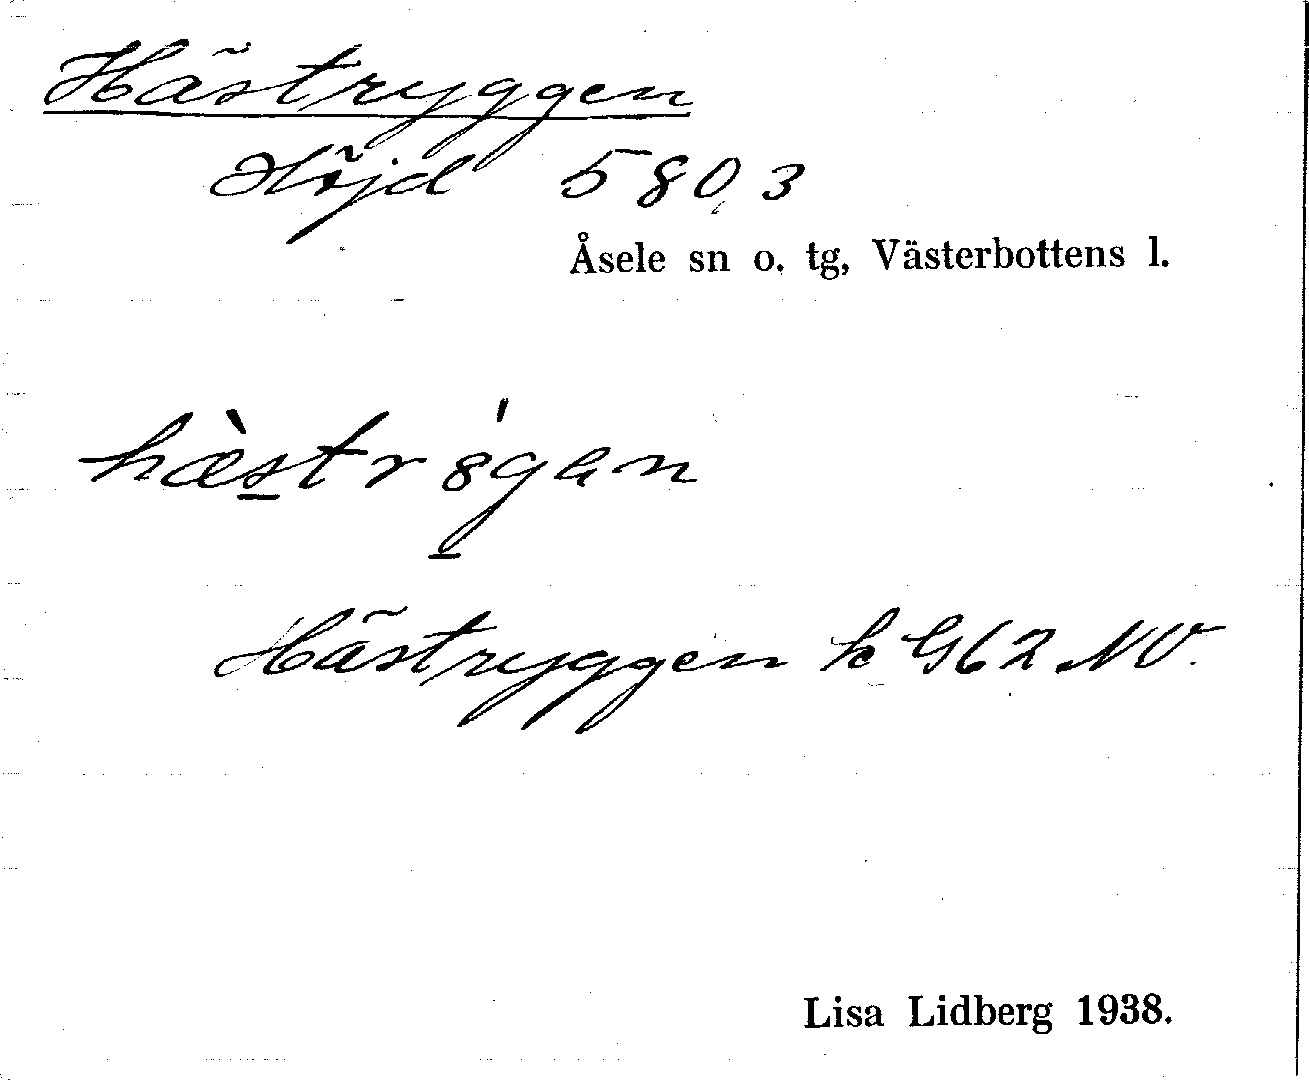 Hästryggen
Höjd 580,3
Åsele sn o. tg, Västerbottens l.
hæ̀str8́gan
Hästryggen k G62 NV.
Lisa Lidberg 1938.